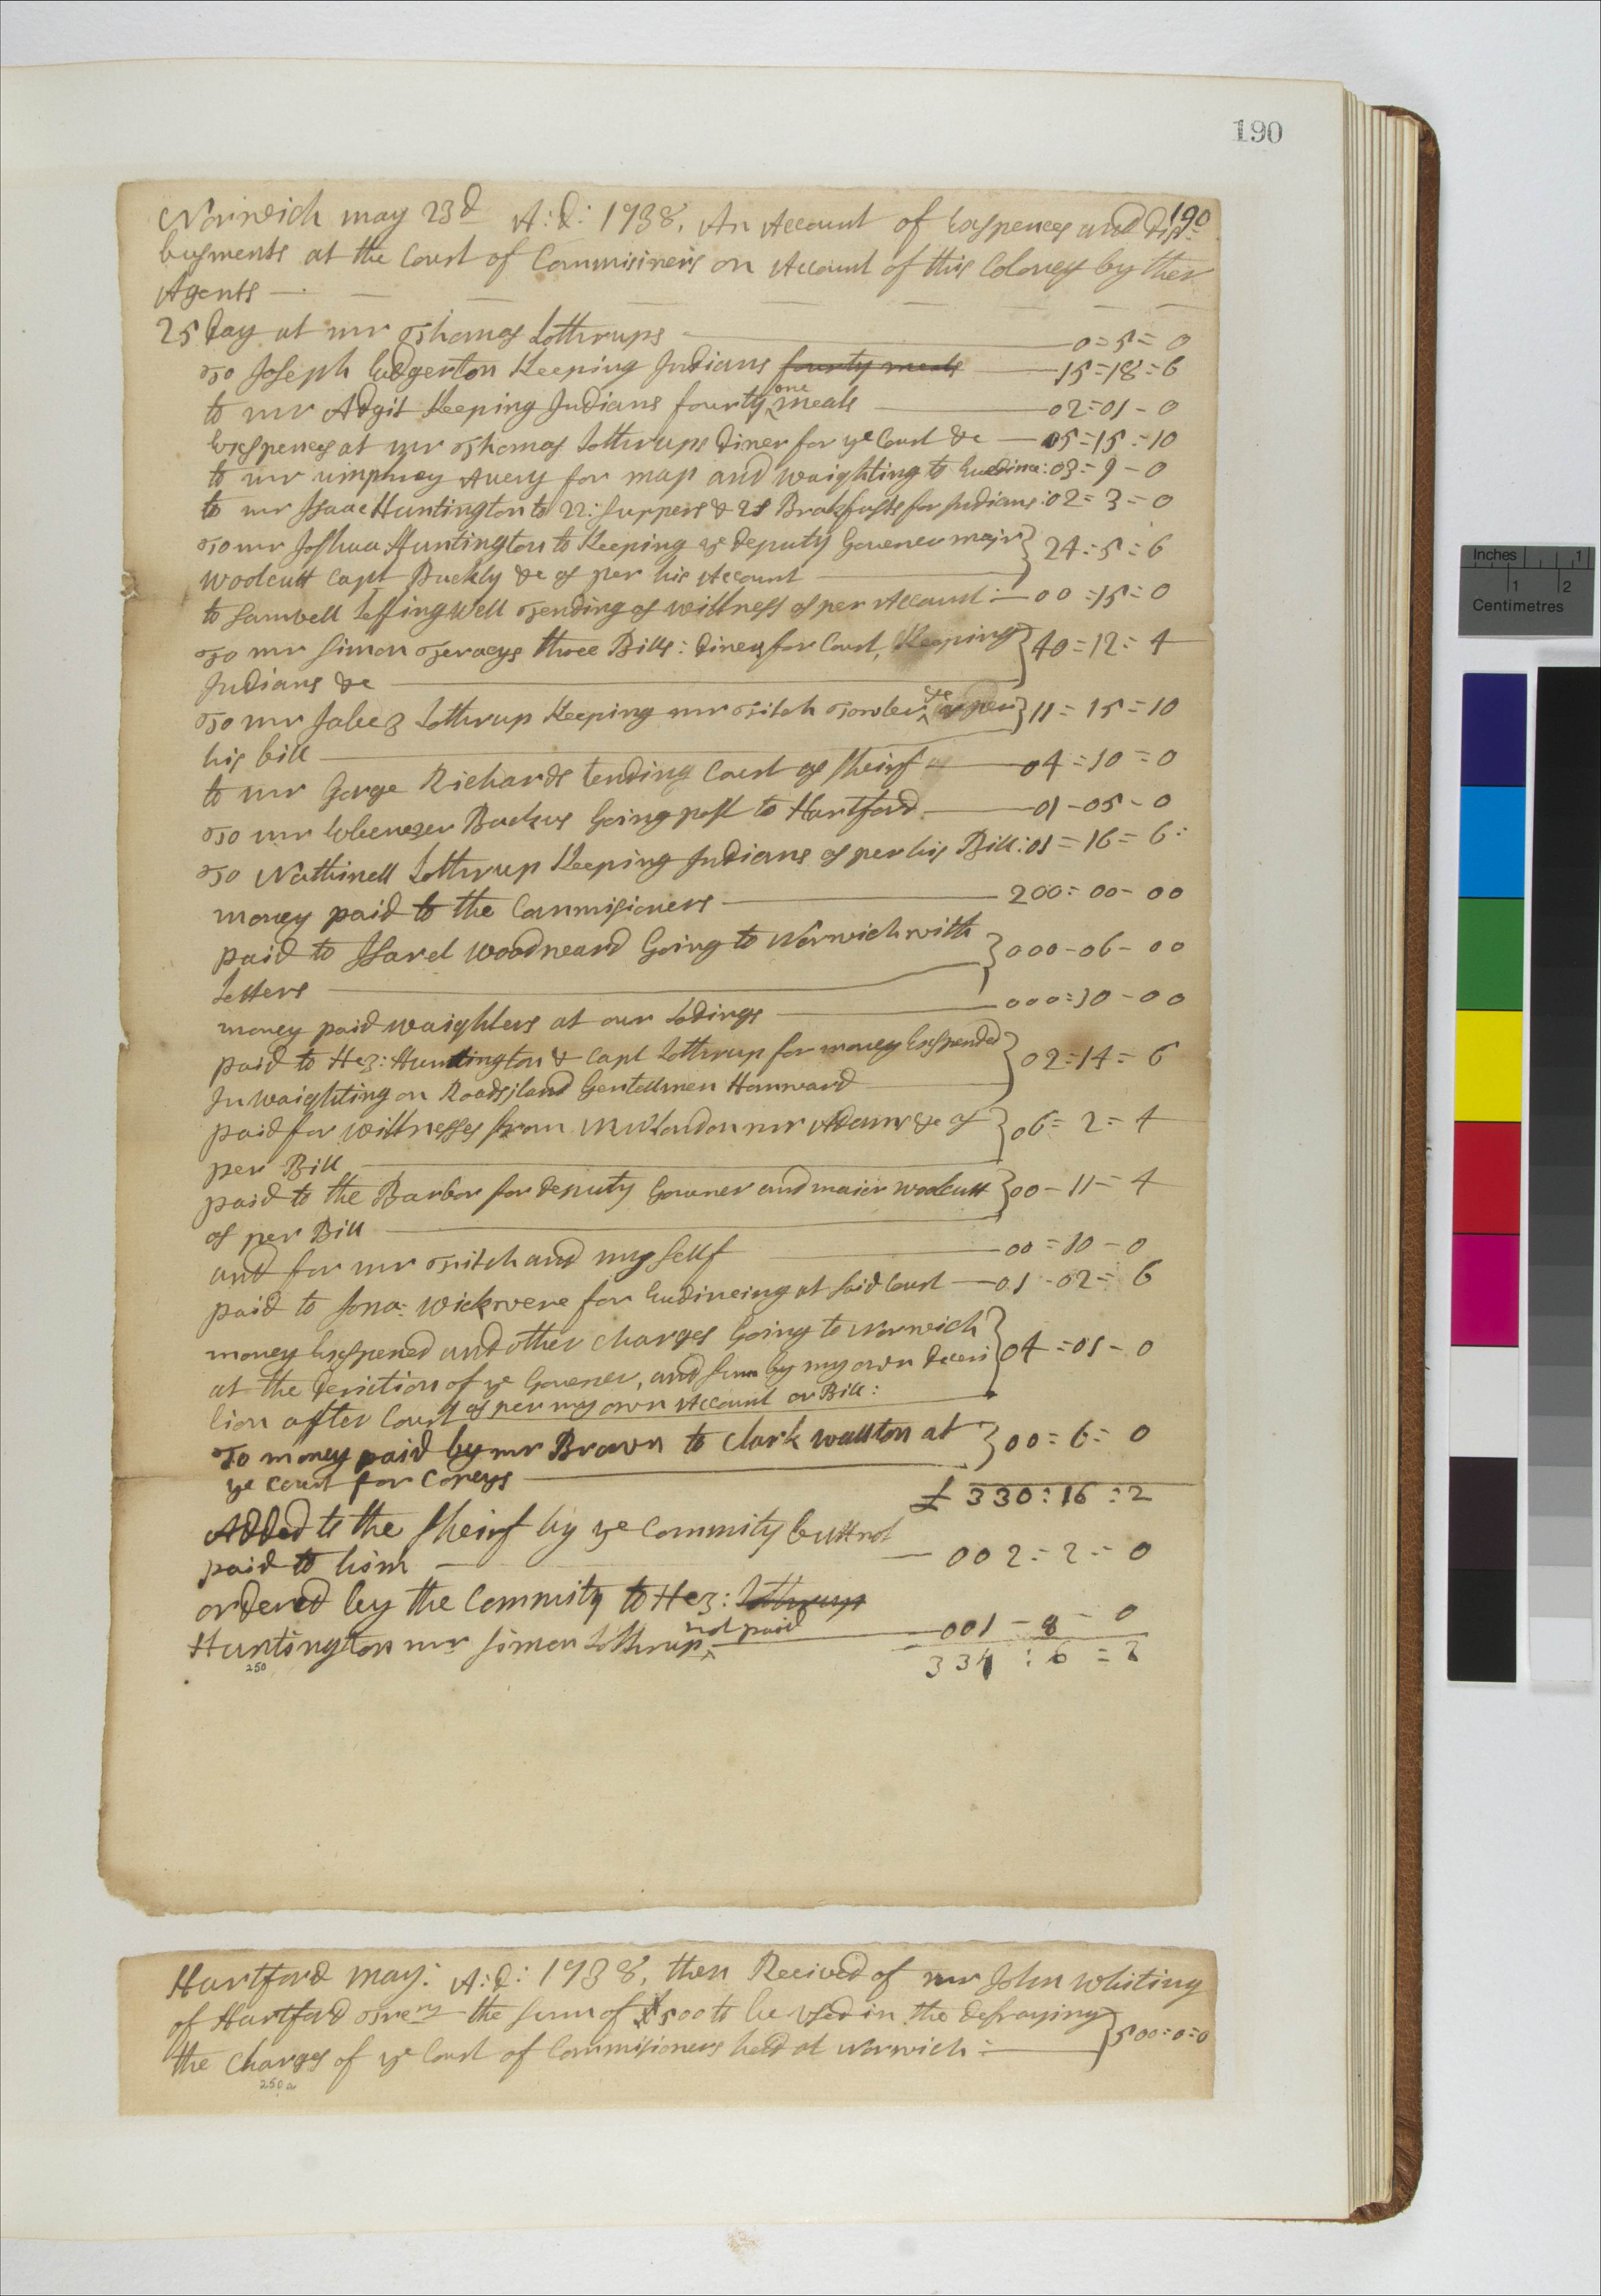 190
190
Norwich may 23d A:D: 1738. An Account of Exspences and Dis=
busments at the Court of Commisiners on Account of this Coloney by ther
Agents
25 Day at mr Thomas Lothrups 0=5=0
To Joseph Edgerton Keeping Indians fourty meals 15=18=6
to mr Adgit Keeping Indians fourty one meals 02=01-0
Exspences at mr Thomas Lothrups Diner for ye Court &c 05=15=10
to mr umphrey Avery for map and waighting to Euedince: 03=9-0
to mr Isaac Huntington to 22: suppers & 21 Brakfasts for Indians: 02=3=0
To mr Joshua Huntington to Keeping ye deputy Governer major
Woolcutt Capt Buckly &c as per his Account } 24=5=6
to Samuell Leffingwell Tending as wittness as per Account: 00=15=0
To mr Simon Traceys three Bills: Diners for Court, Keeping
Indians &c } 40=12=4
To mr Jabez Lothrup Keeping mr Fitch Fowler &c as per
his bill } 11=15=10
to mr Gorge Richards tending Court as sheirf 04=10=0
To mr Ebenezer Backus Going post to Hartford 01-05-0
To Nathinell Lothrup Keeping Indians as per his Bill: 01=16=6:
money paid to the Commisioners 200=00-00
paid to Isarel Woodweard Going to Norwich with
Letters } 000-06-00
money paid waighters at our Lodings 000=10-00
paid to Hez: Huntington & Capt Lothrup for money Exspended
In waighting on Roadsiland Gentellmen Homward } 02=14=6
paid for wittnesses from NewLondon mr Adams &c as
per Bill } 06=2=4
paid to the Barbor for Deputy Governer and maier woolcutt
as per Bill } 00-11=4
and for mr Fitch and my self 00=10-0
paid to Jona: Wickwere for Eudinceing at said Court 01-02=6
money Exspened and other charges Going to Norwich
at the Deriction of ye Governer, and sum by my own Discri
tion after Court as per my own Account or Bill: } 04=01-0
To money paid by mr Brown to Clark wallton at
ye Court for Copeys } 00=6=0
£ 330:16:2
Added to the sheirf by ye Commity butt not
paid to him 002=2=0
ordered by the Commity to Hez: Lothrup
Huntington mr Simon Lothrup not paid 001-8-0
250
334:6=2
Hartford may: A:D: 1738, then Recived of mr John Whiting
of Hartford Trery the sum of £500 to be Used in the defraying
the Charges of ye Court of Commisioners held at Norwich: } 500=0=0
250a
Inches 1
1 2
Centimetres